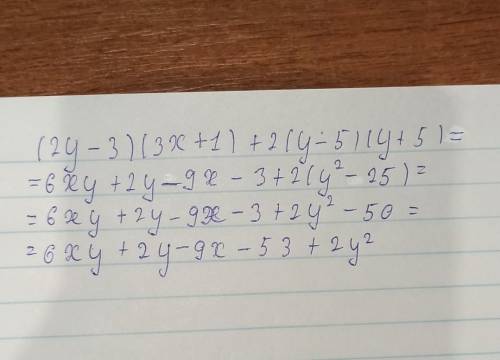 (2y-3)(3x+1)+2(y-5)(y+5)=
=6xy+2y-9x-3+2(y²-25)=
=6xy+2y-9x-3+2y²-50=
=6xy+2y-9x-53+2y²